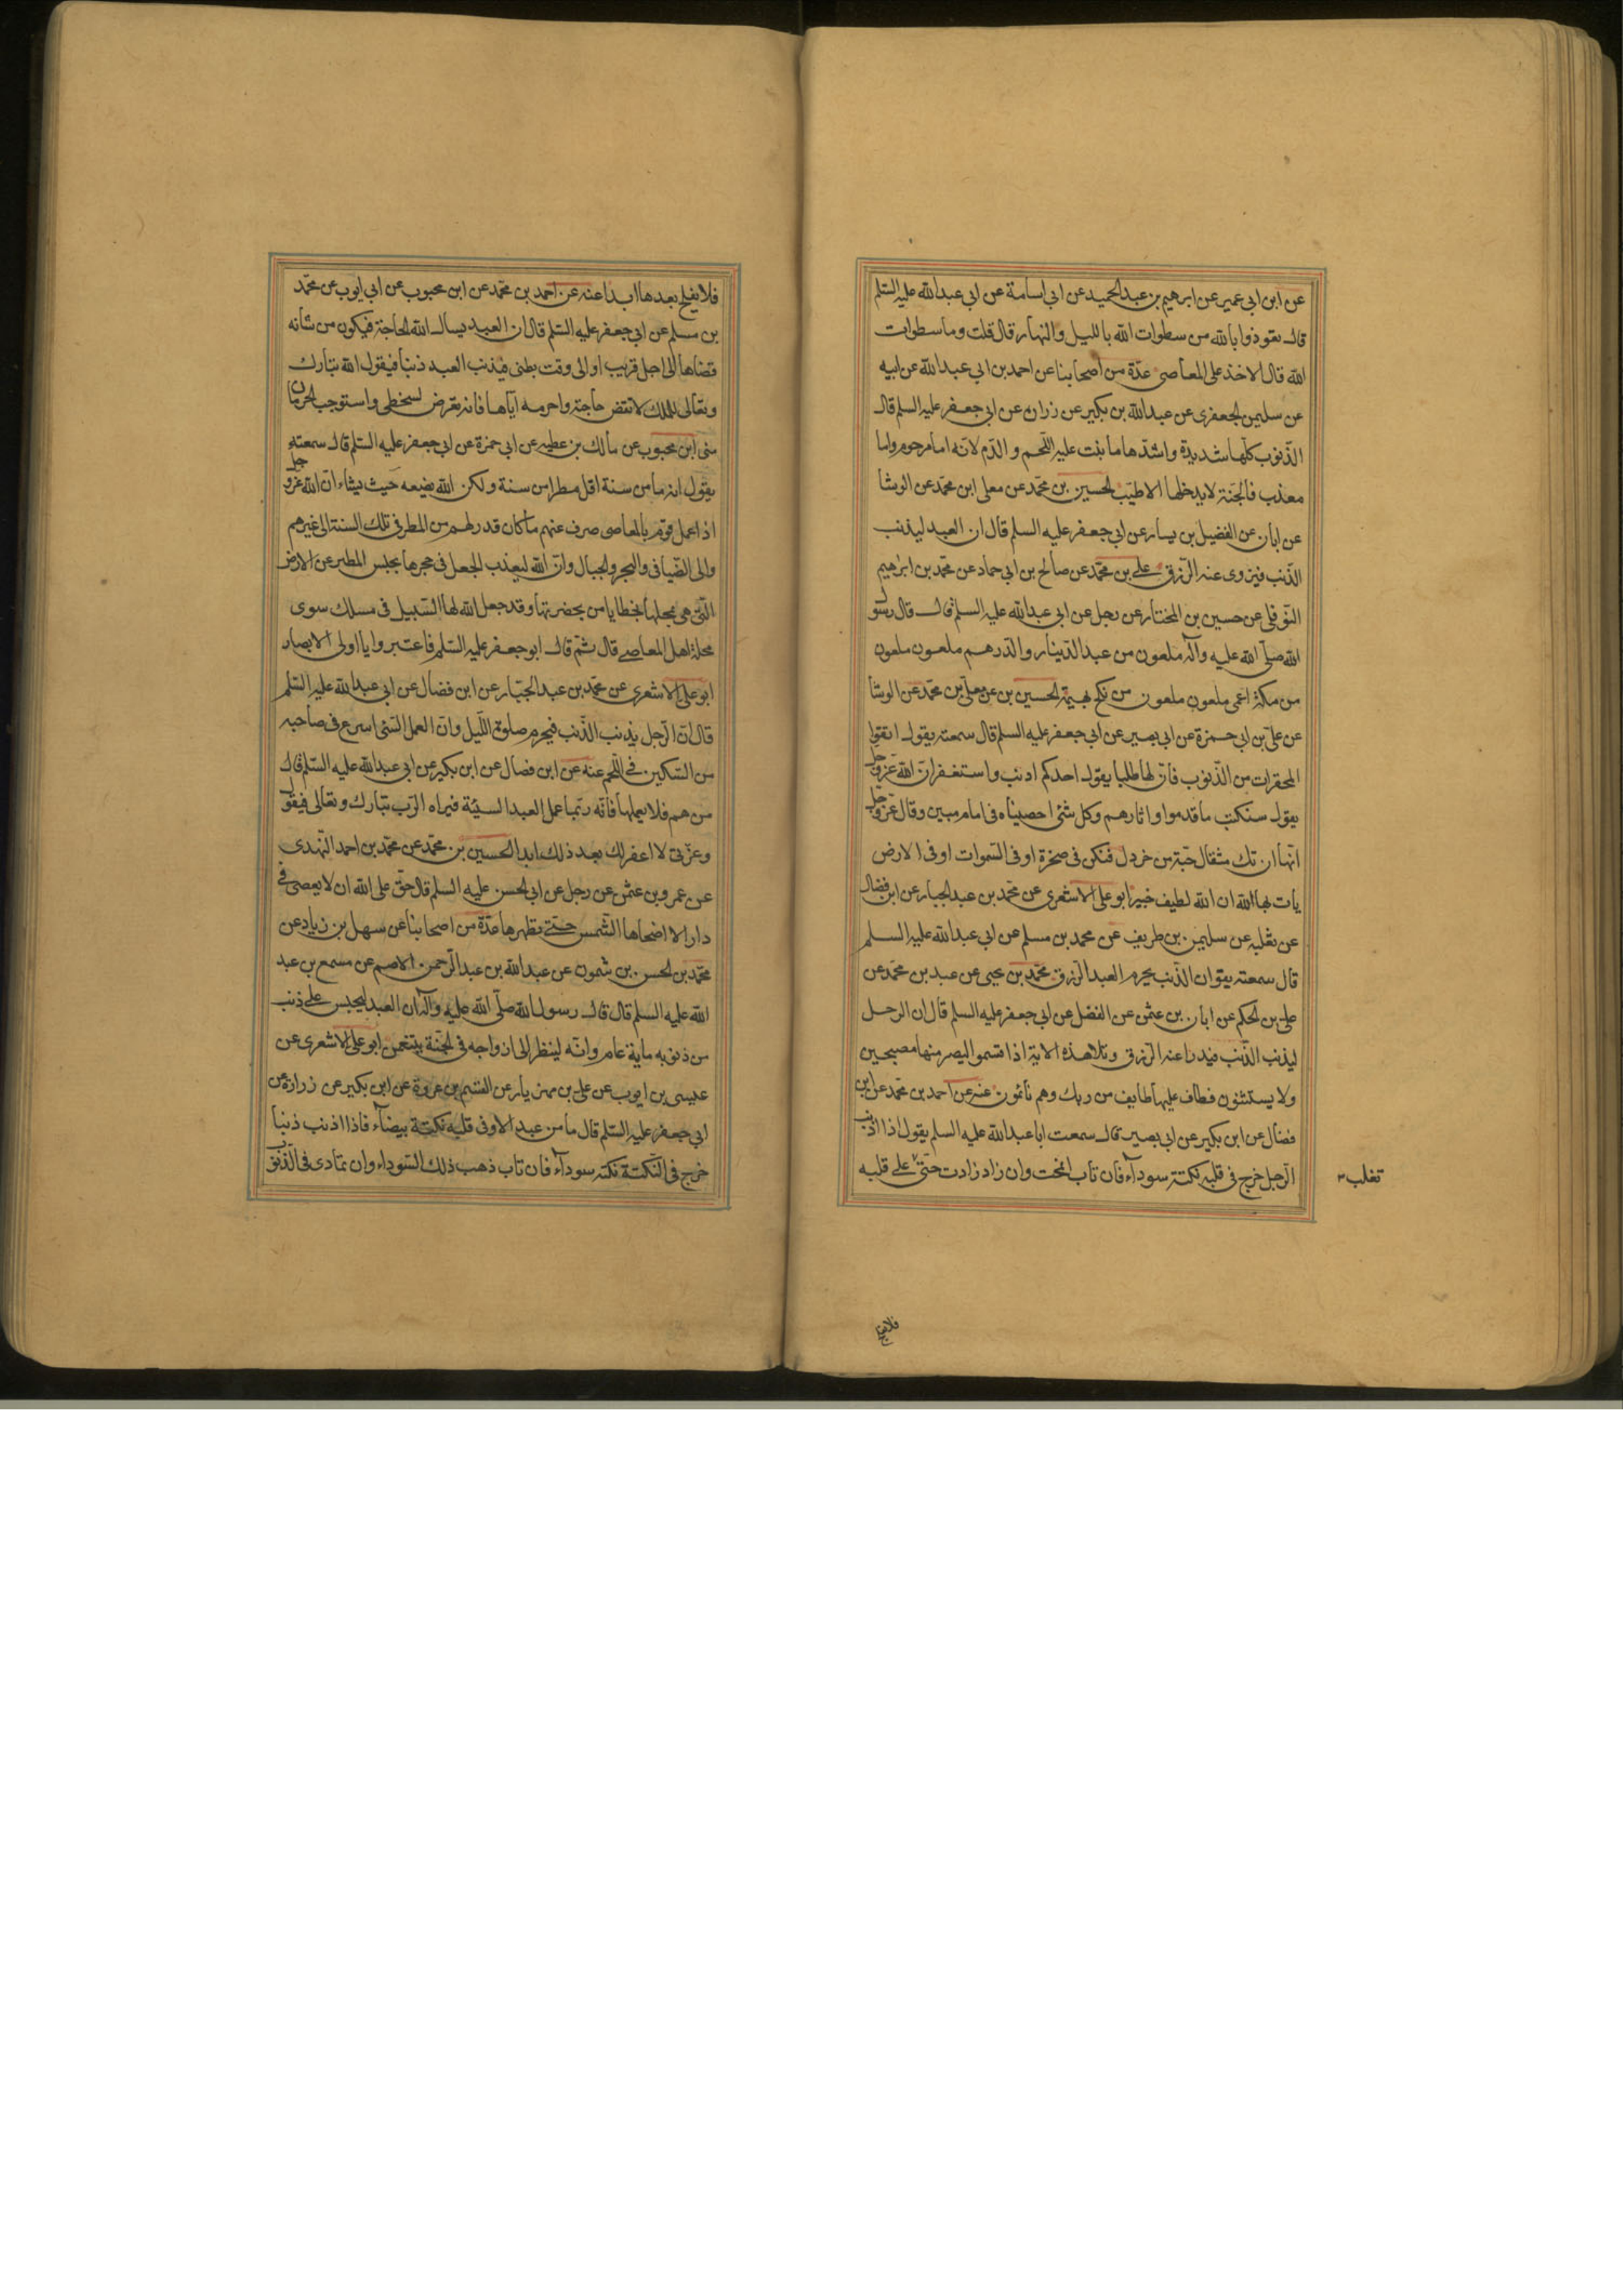 عن ابن ابي عمير عن ابرهيم بن عبد الحميد عن ابي اسامة عن ابي عبد الله عليه السّلم
قال تعوذوا بالله من سطوات الله بالليل والنهار قال قلت وما سطوات
الله قال الاخذ على المعاصي عدّة من اصحابنا عن احمد بن ابي عبد الله عن ابيه
عن سليمن الجعفرى عن عبد الله بن بكير عن زرارن عن ابي جعفر عليه السلم قال
الذّنوب كلّها شديدة واشدّها ما نبت عليه اللّحم والدّم لانّه اما مرحوم واما
معذب فالجنة لا يدخلها الا طيّب الحسين بن محمّد عن معلى ابن محمّد عن الوشا
عن ابان عن الفضيل بن يسار عن ابي جعفر عليه السلم قال ان العبد ليذنب
الذّنب فيزوى عنه الرّزق على بن محمّد عن صالح بن ابي حماد عن محمّد بن ابرهيم
النّوفلى عن حسين بن المختار عن رجل عن ابي عبد الله عليه السلم قال قال رسول
الله صلّى الله عليه وآله ملعون من عبد الدّينار والدّرهم ملعون ملعون
من مكنه اعمى ملعون ملعون من نكح بهيمة الحسين بن عن معلى بن محمّد عن الوشا
عن علىّ بن ابي حمزة عن ابي بصير عن ابي جعفر عليه السلم قال سمعته يقول اتقوا
المحقرات من الذّنوب فانّ لها طلبا يقول احدكم اذنب واستغفر انّ الله عزّ وجل
يقول سنكتب ما قدموا واثارهم وكل شئ احصيناه في امام مبين وقال عزّ وجلّ
انّها ان تك مثقال حبّة من خردل فتكن في صخرة او في السّموات او في الارض
يأت بها الله ان الله لطيف خبير ابو على الاشعرى عن محمّد بن عبد الجبار عن ابن فضال
عن ثعلبه عن سليمن بن طريف عن محمد بن مسلم عن ابي عبد الله عليه السلم
قال سمعته يقو ان الذّنب يحرم العبد الرّزق محمّد بن يحيى عن عبد بن محمّد عن
على بن الحكم عن ابان بن عثمن عن الفضل عن ابي جعفر عليه السلم قال ان الرجل
ليذنب الذّنب فيدرا عنه الرّزق وتلا هذه الاية اذا قسموا ليصرمنها مصبحين
ولا يستثنون فطاف عليها طايف من ربك وهم نائمون عنه عن احمد بن محمّد عن ابن
فضال عن ابن بكير عن ابي بصير قال سمعت ابا عبد الله عليه السلم يقول اذا اذنب
الرّجل خرج في قلبه نكتة سوداء فان تاب انمحت وان زاد زادت حتّى على قلبه
تغلب
فلايفلح
فلا يفلح بعدها ابدا عنه عن احمد بن محمّد عن ابن محبوب عن ابي ايوب عن محمّد
بن مسلم عن ابي جعفر عليه السّلم قال ان العبد يسال الله الحاجة فيكون من شأنه
قضاها الى اجل قريب او الى وقت بطئ فيذنب العبد ذنبا فيقول الله تبارك
وتعالى للملك لا تقض حاجته واحرمه ايّاها فانه تعرض لسخطى واستوجب الحرمان
منى ابن محبوب عن مالك بن عطيه عن ابي حمزة عن ابي جعفر عليه السّلم قال سمعته
يقول انه ما من سنة اقل مطرا من سنة ولكن الله يضعه حيث يشاء انّ الله عزّ وجلّ
اذا عمل قوم بالمعاصى صرف عنهم ما كان قدر لهم من المطر في تلك السنة الى غيرهم
والى الفيافى والبحر والجبال وانّ الله ليعذب الجعل في حجرها بحبس المطر عن الارض
الّتى هى بمحلها بخطايا من بحضرتها وقد جعل الله لها السّبيل في مسلك سوى
محلة اهل المعاصى قال ثمّ قال ابو جعفر عليه السّلم فاعتبروا يا اولى الابصار
ابو على الاشعرى عن محمّد بن عبد الجبّار عن ابن فضال عن ابي عبد الله عليه السّلم
قال انّ الرّجل يذنب الذّنب فيحرم صلوة اللّيل وانّ العمل السّئ اسرع في صاحبه
من السّكين في اللّحم عنه عن ابن فضال عن ابن بكير عن ابي عبد الله عليه السّلم قال
من هم فلا يعملها فانّه ربّما عمل العبد السيئة فيراه الرّب تبارك وتعالى فيقول
وعزّتى لا اغفر لك بعد ذلك ابدا الحسين بن محمّد عن محمّد بن احمد النّهدى
عن عمرو بن عثمن عن رجل عن ابي الحسن عليه السلم قال حقّ على الله ان لا يعصى في
دار الا اضحاها الشّمس حتّى تطهرها عدّة من اصحابنا عن سهل بن زياد عن
محمّد بن الحسن بن شمون عن عبد الله بن عبد الرّحمن الاصم عن مسمع بن عبد
الله عليه السلم قال قال رسول الله صلّى الله عليه وآله ان العبد ليحبس على ذنب
من ذنوبه ماية عام وانّه لينظر الى ازواجه في الجنّة يتنعمن ابو على الاشعرى عن
عيسى بن ايوب عن على بن مهزيار عن القسم بن عروة عن ابن بكير عن زرارة عن
ابي جعفر عليه السّلم قال ما من عبد الا وفى قلبه نكتة بيضاء فاذا اذنب ذنبا
خرج في النّكتة نكته سوداء فان تاب ذهب ذلك السّوداء وان تمادى في الذّنوب